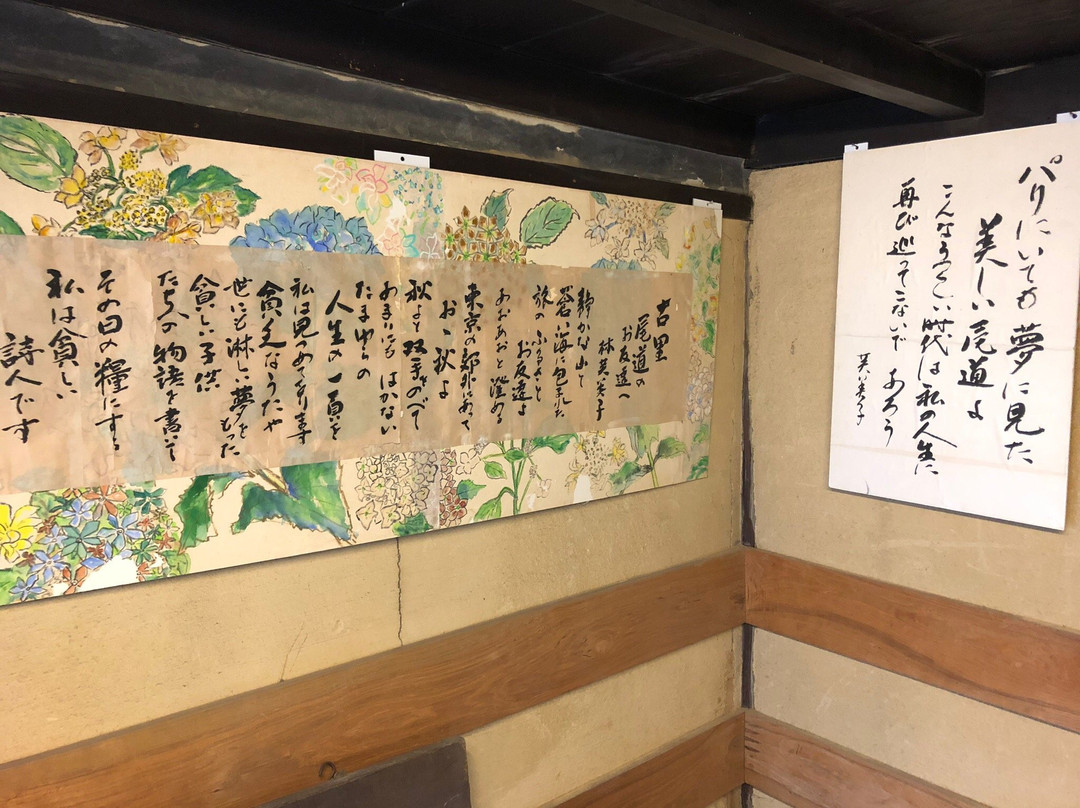 パリにいても夢に見た
美しい尾道よ
こんなうつくしい時代は私の人生に
再び巡ってこないであろう
芙美子
古里
尾道の
お友達へ
林芙美子
静かな山と
蒼い海に包まれた
旅のふるさと
お友達よ
あおあおと澄める
東京の郊外にあって
おゝ秋よ
秋よと双手をのべて
あまりにもはかない
たまゆらの
人生の一頁を
私は見つめております
貧乏なうたや
世にも淋しい夢をもった
貧しい子供
たちの物語を書いて
その日の糧にする
私は貧しい
詩人です